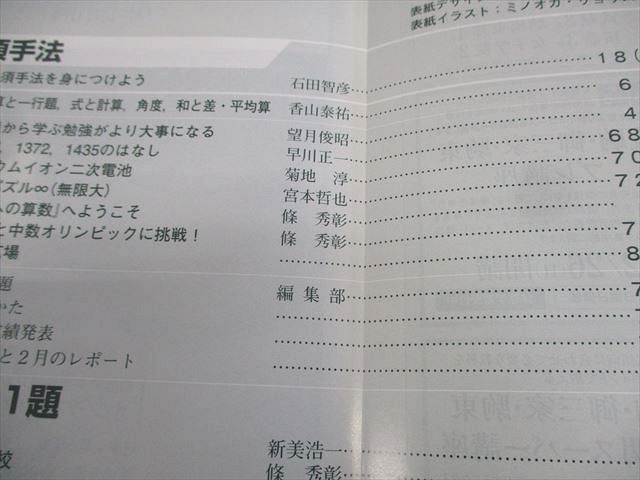 表紙デザイン
表紙イラスト：ミノオカ・リョウ
須手法
須手法を身につけよう 石田智彦 18(
算と一行題，式と計算，角度，和と差・平均算 香山泰祐 6
から学ぶ勉強がより大事になる 望月俊昭 4
，1372，1435のはなし 早川正一 68
ウムイオン二次電池 菊地 淳 70
パズル∞(無限大) 宮本哲也 72
への算数』へようこそ 條 秀彰
と中数オリンピックに挑戦！ 條 秀彰 7
広場 8
題 編集部 7
かた
実績発表
と2月のレポート
1題
校 新美浩一
條 秀彰